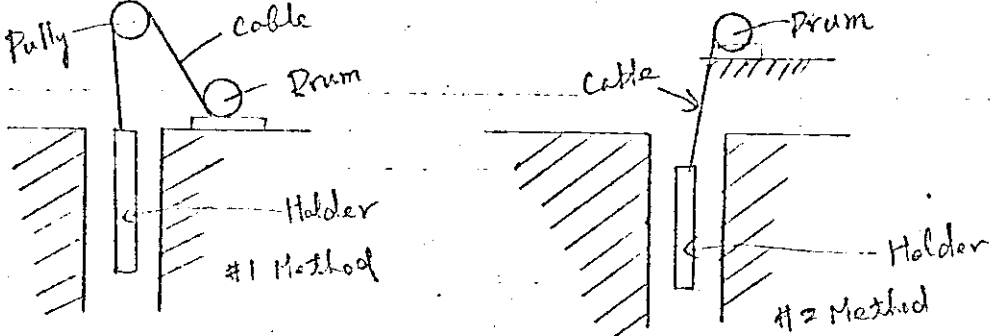 Pully
Cable
Drum
Holder
#1 Method
Drum
Cable
Holder
#2 Method